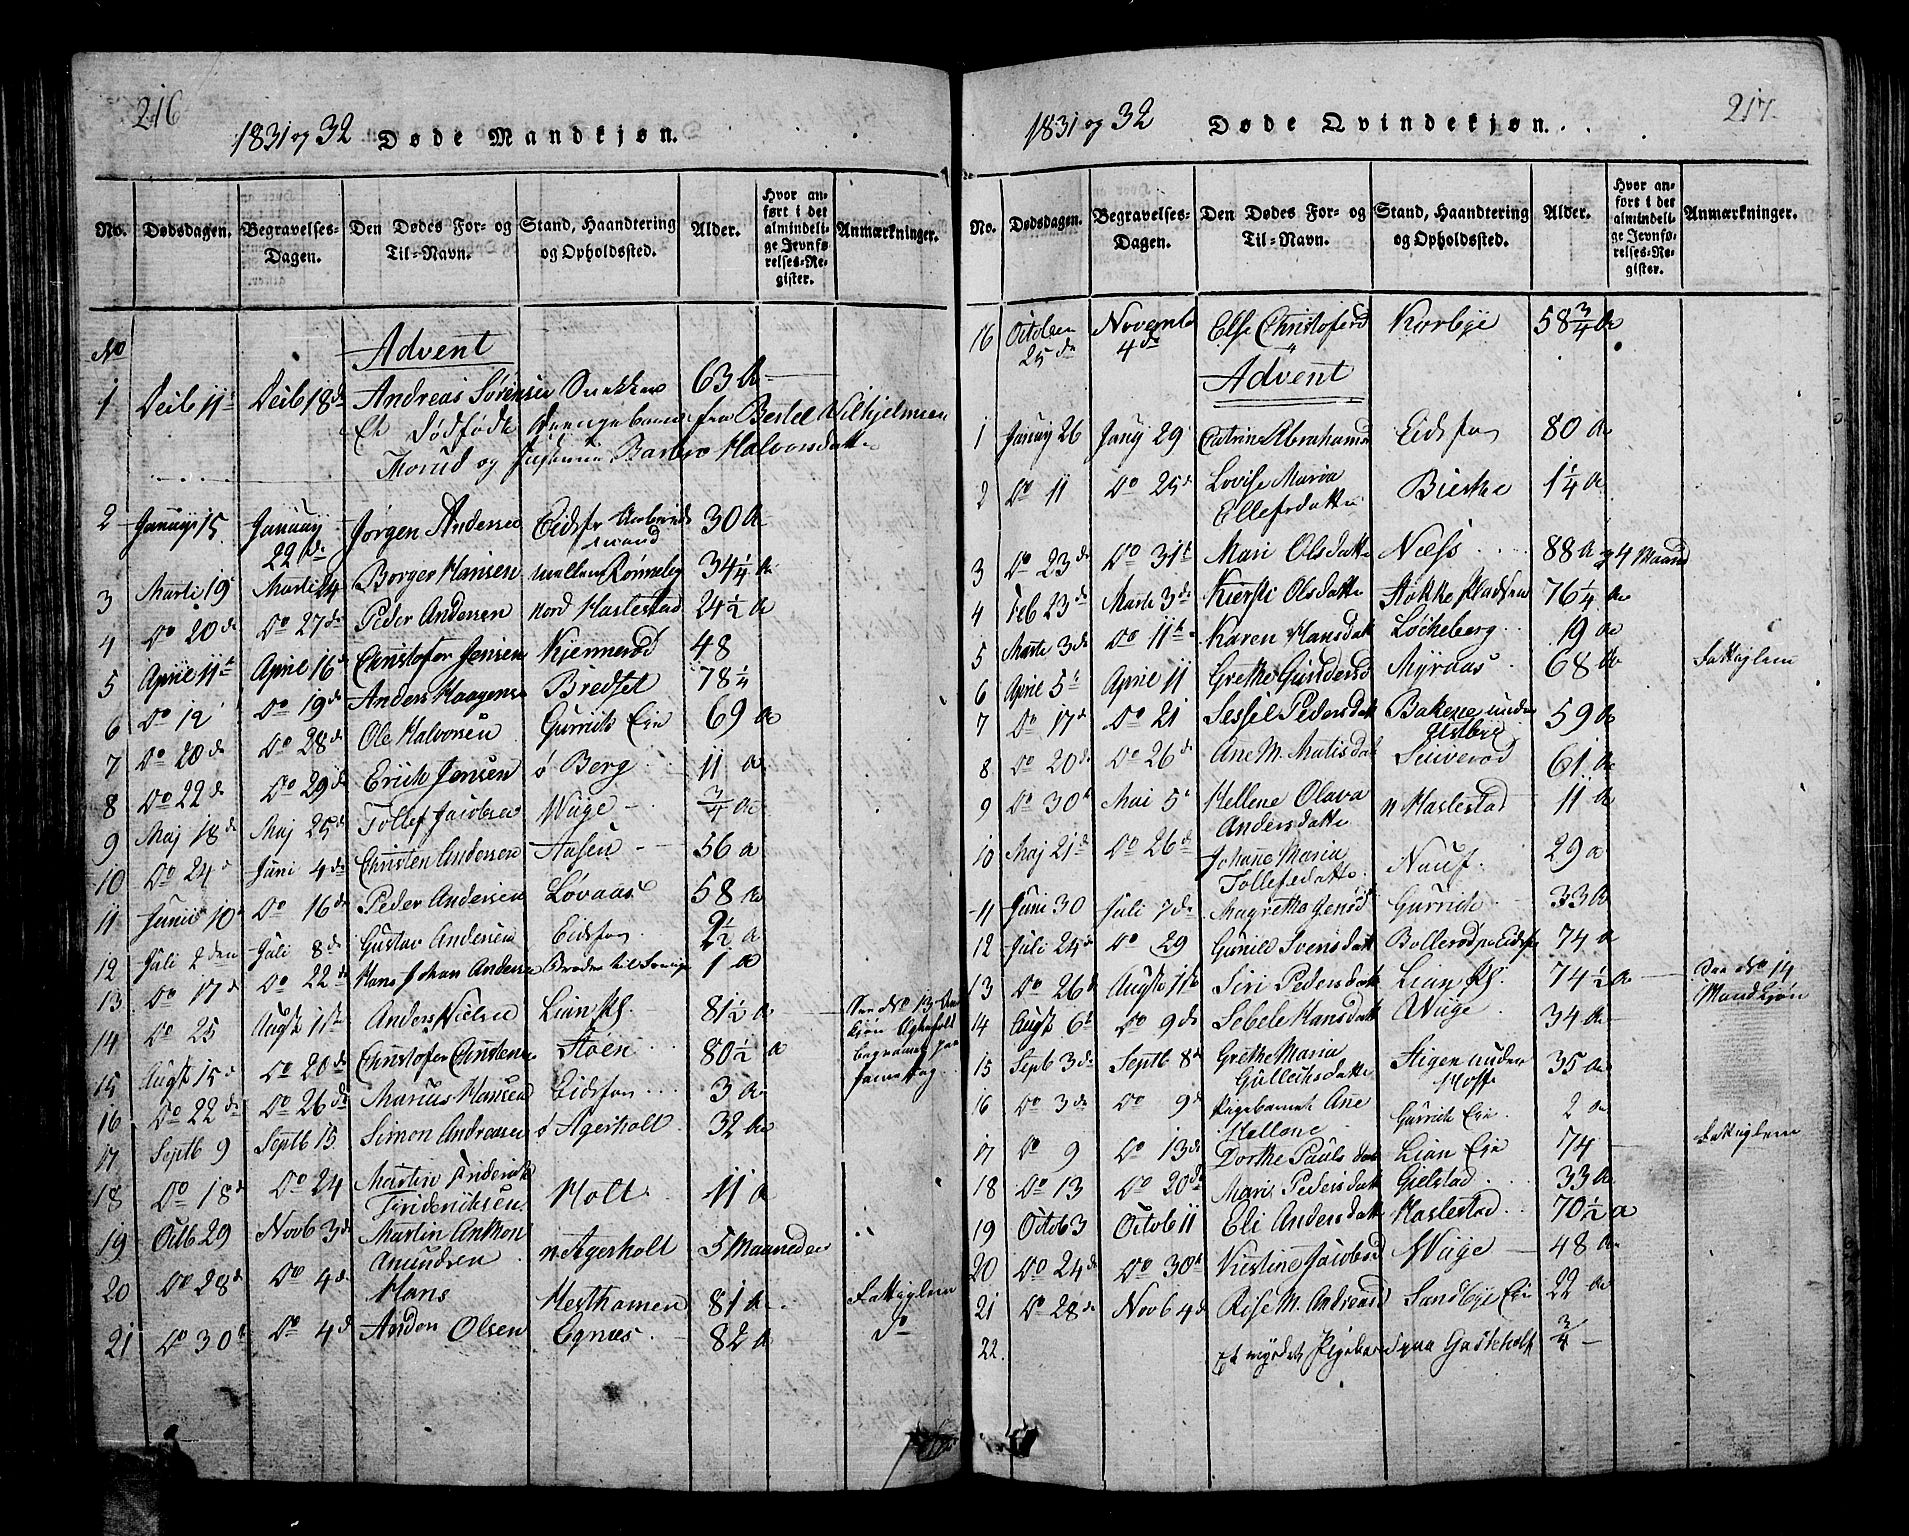 216
1831 og 32 Døde Mandkjøn.
No. Dødsdagen. Begravelses-Dagen. Den Dødes For- og Til-Navn. Stand, Haandtering og Opholdssted. Alder. Hvor anført i det almindelige Jevnførelses-Register. Anmærkninger.
No Advent
1 Decb 11 Decb 18de Andreas Sørensen Snekker 63 A
Et Dødfødt Drengebarn fra Bertel Wilhjelmsen
Morud og Barbro Halvorsdatter
2 Januar 15 Januar 22de Jørgen Andersen Eidsfos Arbeidsmand 30 A
3 Marti 19 Marti 24 Borger Hansen mellem Rønneberg 34 1/4 A
4 Do 20de Do 27de Peder Andersen nord Haslestad 24 1/2 A
5 April 11te April 16 Christofer Jensen Kjennerød 48
6 Do 12 Do 19de Anders Haagensen Bredset 78 1/4
7 Do 20de Do 28de Ole Halvorsen Gurrik Eje 69 A
8 Do 22de Do 29de Erich Jensen ø Berg 11 A
9 Maj 18de Maj 25de Tollef Jacobsen Wige 3/4 A
10 Do 24de Juni 4de Christen Andersen Aasen 56 A
11 Junii 10 Do 16de Peder Andersen Løvaas 58 A
12 Juli 2den Juli 8de Gustav Andersen Eidsfos 2 1/2 A
13 Do 17de Do 22de Hans Johan Andersen Broder til 1 A
14 Do 25 Augst 1ste Anders Nielsen Lian Pl. 81 1/2 A See No 13 begraven paa samme Dag
15 Augst 15de Do 20de Christofer Christensen Stoen 80 1/2 A
16 Do 22de Do 26de Marius Hansen Eidsfos 3 A
17 Septb 9 Septb 15 Simon Andreasen ø Agerholt 32 A
18 Do 18de Do 24 Martin Friderik Frideriksen Holt 11 A
19 Octb 29 Novb 3de Martin Anthon Amundsen n Agerholt 5 Maaneder
20 Do 28de Do 4de Hans Hesthamen 81 A Fattiglem
21 Do 30te Do 4de Anders Olsen Egnæs 82 A Do
217
1831 og 32 Døde Qvindekjøn.
No. Dødsdagen. Begravelses-Dagen. Den Dødes For- og Til-Navn. Stand, Haandtering og Opholdssted. Alder. Hvor anført i det almindelige Jevnførelses-Register. Anmærkninger.
16 October 25de November 4de Else Christoferd Korbye 58 3/4 A
Advent
1 Januay 26 Jany 29 Catrine Abrahamsd Eidsfos 80 A
2 Do 11 Do 25de Lovise Maria Ellefsdatter Bierke 1 1/4 A
3 Do 23de Do 31te Mari Olsdatter Neess 88 A 4 Maand
4 Feb 23de Marte 3de Kiersti Olsdatter Stokke Pladsen 76 1/4 A
5 Marte 3de Do 11te Karen Hansdatt Løcheberg 19 A
6 April 5te April 11 Grethe Gundersd Myraas 68 A Fattiglem
7 Do 17de Do 21 Sessel Pedersdatt Bakene under Østbye 59 A
8 Do 20de Do 26de Ane M. Matisdatt 61 A
9 Do 30te Mai 5te Hellene Olava Andersdatter n Haslestad 11 A
10 Maj 21de Do 26de Johanne Maria Tollefsdatter Nauf 29 A
11 Juni 30 Juli 7de Magrethe Jensd Gurrik 33 A
12 Juli 24de Do 29 Gunild Iversdatt Bollerød pr Eidsfos 74 A
13 Do 26de Augst 1te Siri Pedersdatt Lian Pl. 74 1/2 A See No 14 Mandkjøn
14 Augst 6te Do 9de Sebele Hansdatt Wige 34 A
15 Septb 3de Septb 8de Grethe Maria Gullichsdatter Stigen under Hoffe 35 A
16 Do 3de Do 9de Pigebarnet Ane Hellene Gurrik Eje 2 A
17 Do 9 Do 13de Dorthe Pauls dat Lian Eje 74 Fattiglem
18 Do 13 Do 20de Maris Pedersdatt Gielstad 33 A
19 Octob 3 Octob 11 Eli Andersdatt Haslestad 70 1/2 A
20 Do 24de Do 30te Kirstine Jacobsd Wige 48 A
21 Do 28de Novb 4de Rise M. Andreasd Sandbye Eje 22 A
22 Et myrdet Pigebarn paa Gasteholt 3/4